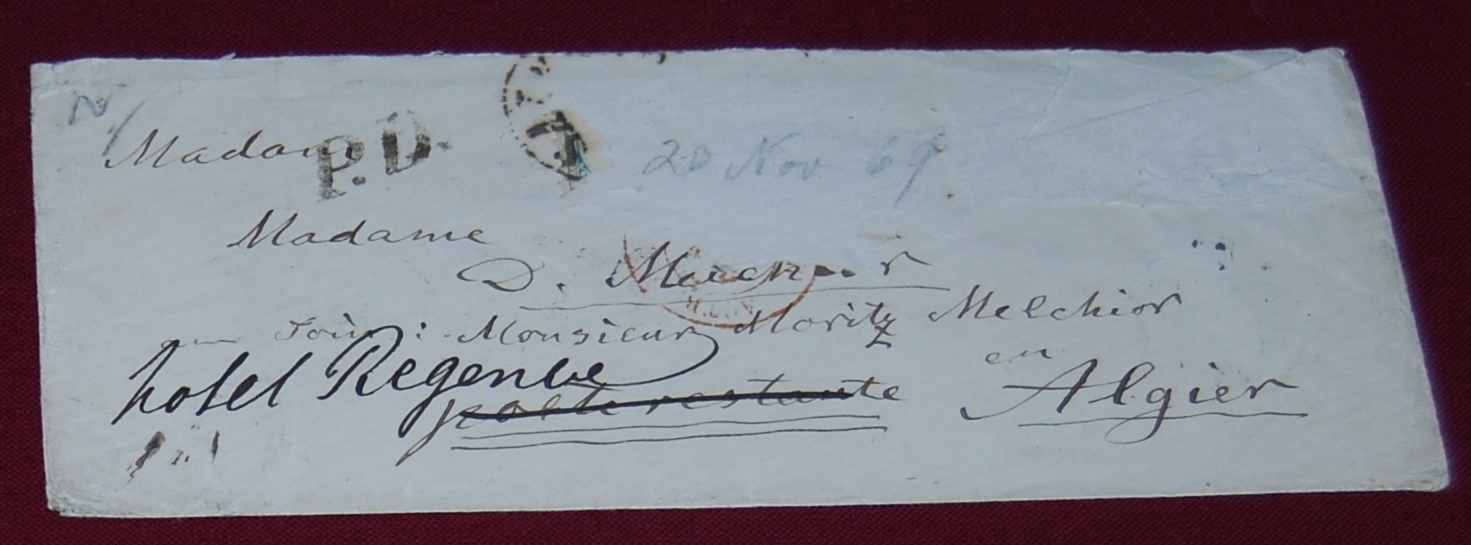 Madame P.D.
20 Nov 69
Madame
D. Melchior
Monsieur Moritz Melchior
hotel Regence
poste restante en Algier